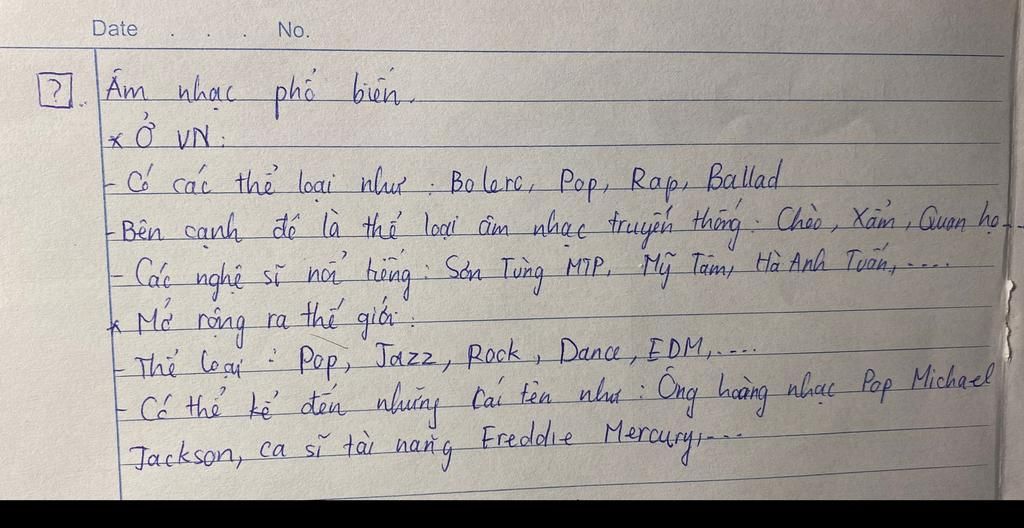 Date . . . No.
? Âm nhạc phổ biến.
* Ở VN:
- Có các thể loại như : Bolerc, Pop, Rap, Ballad
- Bên cạnh đó là thể loại âm nhạc truyền thống : Chèo, Xẩm, Quan họ...
- Các nghệ sĩ nổi tiếng : Sơn Tùng MTP, Mỹ Tâm, Hà Anh Tuấn,....
* Mở rộng ra thế giới :
- Thể loại : Pop, Jazz, Rock, Dance, EDM,....
- Có thể kể đến những cái tên như : Ông hoàng nhạc Pop Michael
Jackson, ca sĩ tài năng Freddie Mercury,...